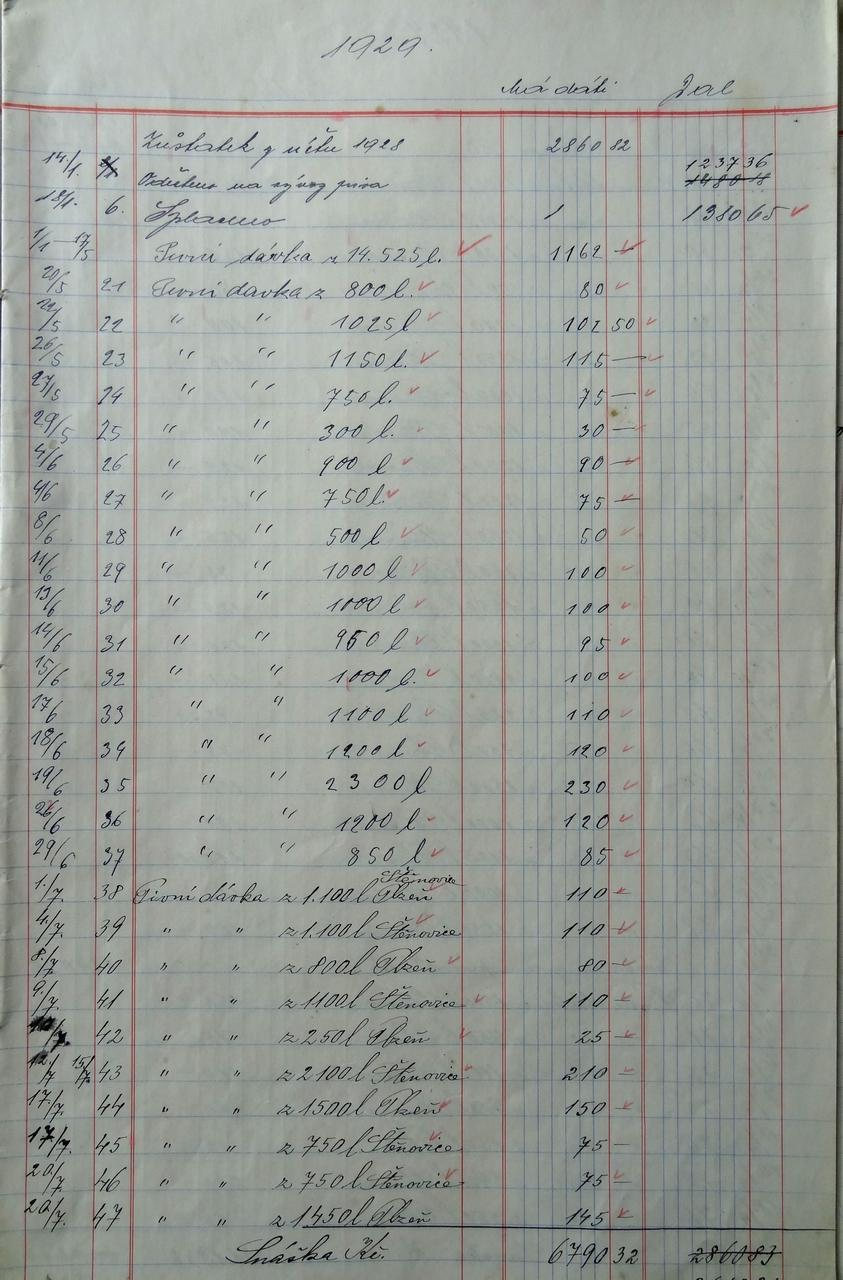 1929.
Má dáti Dal
Zůstatek z účtu 1928 2860 82
14/1. 1237 36
na vývoz piva
18/1. 6. Splaceno 1380 65
1/1 — 17/5 Pivní dávka z 14.525 l. 1162 —
20/5 21 Pivní dávka z 800 l. 80
22/5 22 " " 1025 l 102 50
26/5 23 " " 1150 l. 115 —
27/5 24 " " 750 l. 75 —
29/5 25 " " 300 l. 30 —
4/6 26 " " 900 l 90 —
4/6 27 " " 750 l. 75 —
8/6 28 " " 500 l 50
11/6 29 " " 1000 l 100
13/6 30 " " 1000 l 100
14/6 31 " " 950 l 95
15/6 32 " " 1000 l. 100
17/6 33 " " 1100 l 110
18/6 34 " " 1200 l 120
19/6 35 " " 2300 l 230
26/6 36 " " 1200 l 120
29/6 37 " " 850 l 85
Štěnovice
1./7. 38 Pivní dávka z 1.100 l Plzeň 110 —
4./7. 39 " " z 1.100 l Štěnovice 110 —
8./7. 40 " " z 800 l Plzeň 80 —
9./7. 41 " " z 1100 l Štěnovice 110 —
42 " " z 250 l Plzeň 25 —
12./7 15/7. 43 " " z 2100 l Štěnovice 210 —
17./7. 44 " " z 1500 l Plzeň 150 —
17./7. 45 " " z 750 l Štěnovice 75 —
20./7. 46 " " z 750 l Štěnovice 75 —
20./7. 47 " " z 1450 l Plzeň 145 —
Snáška Kč. 6790 32 2860 83